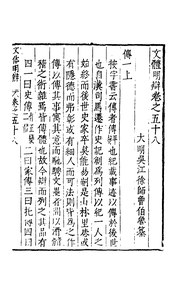 文體明辯卷之五十八
大明吳江徐師曾伯魯纂
傳一上
按字書云傳者傳也紀載事迹以傳於後世
也自漢司馬遷作史記創為列傳以紀一人之
始終而後世史家卒莫能易嗣是山林里巷或
有隱德而弗彰或有細人而可法則皆為之作
傳以傳其事寓其意而馳騁文墨者間以滑
稽之術雜焉皆傳體也故今辯而列之其品有
四一曰史傳二曰家傳三曰托傳四曰
文體明辯
卷之五十八